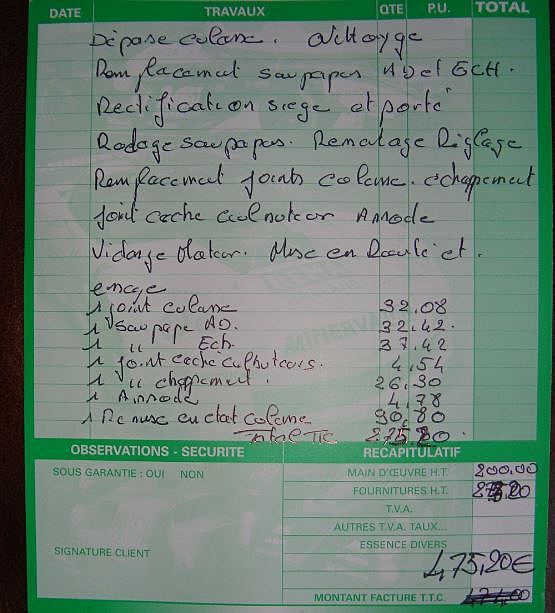 DATE TRAVAUX QTE P.U. TOTAL
Dépose culasse. Nettoyge
Remplacement soupapes AD et ECH.
Rectification siege et porté
Rodage soupapes. Remontage Réglage
Remplacement joints culasse. echappement
joint cache culbuteur Annode
Vidange Moteur. Mise en Route et.
essage
1 joint culasse 32.08
1 Soupape AD. 32.42.
1 " Ech. 37.42
1 joint cache culbuteurs. 4.54
1 " echappement. 26.90
1 Annode 4.78
1 Remise en etat culasse 90,80
Total TTC 275.20.
OBSERVATIONS - SECURITE
RECAPITULATIF
SOUS GARANTIE : OUI NON
MAIN D'ŒUVRE H.T. 200,00
FOURNITURES H.T. 275,20
T.V.A.
AUTRES T.V.A. TAUX...
ESSENCE DIVERS
SIGNATURE CLIENT
475,20€
MONTANT FACTURE T.T.C.
MINERVA